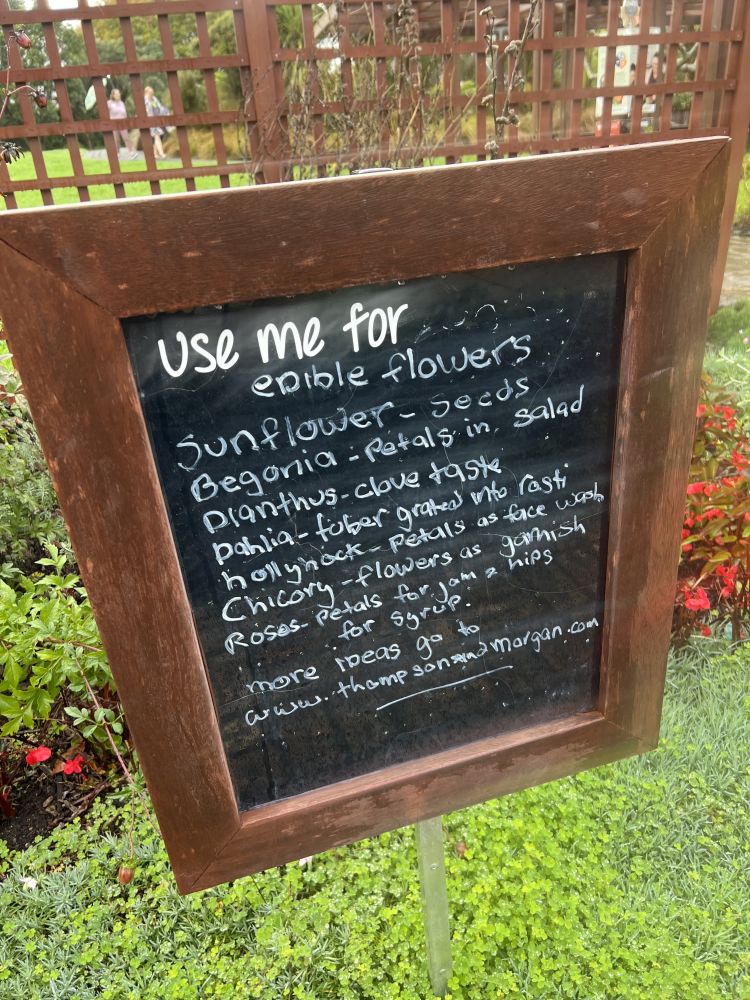 use me for
edible flowers
Sunflower - seeds
Begonia - petals in salad
Dianthus - clove taste
Dahlia - tuber grated into rosti
hollyhock - petals as face wash
Chicory - flowers as garnish
Roses - petals for jam & hips
for syrup.
more ideas go to
www.thompsonandmorgan.com